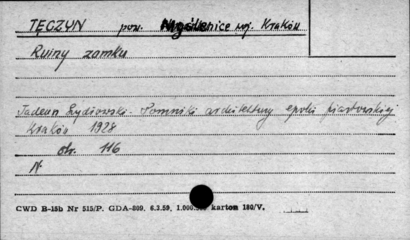 TĘCZYN pow. Myślenice woj. Kraków
Ruiny zamku
Tadeusz Szydłowski. Pomniki architektury epoki piastowskiej
Kraków 1928
str. 116
N
CWD B-15b Nr 515/P. GDA-809. 6.3.59. 1.000. karton 180/V.